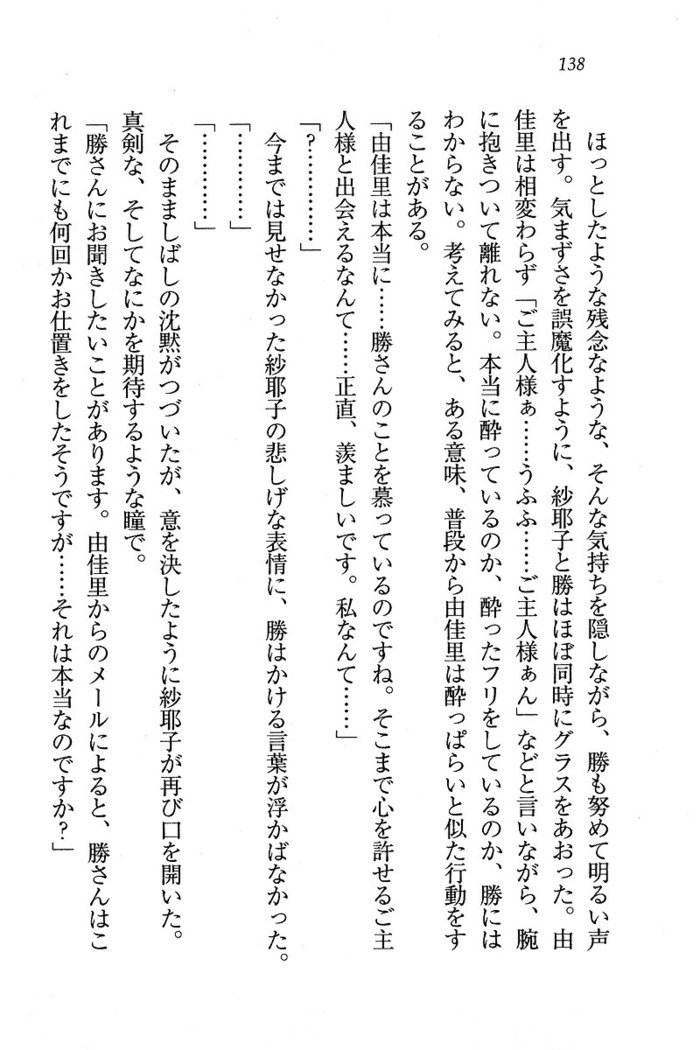 138
ほっとしたような残念なような、そんな気持ちを隠しながら、勝も努めて明るい声
を出す。気まずさを誤魔化すように、紗耶子と勝はほぼ同時にグラスをあおった。由
佳里は相変わらず「ご主人様ぁ……うふふ……ご主人様ぁん」などと言いながら、腕
に抱きついて離れない。本当に酔っているのか、酔ったフリをしているのか、勝には
わからない。考えてみると、ある意味、普段から由佳里は酔っぱらいと似た行動をす
ることがある。
「由佳里は本当に……勝さんのことを慕っているのですね。そこまで心を許せるご主
人様と出会えるなんて……正直、羨ましいです。私なんて……」
「？…………」
今までは見せなかった紗耶子の悲しげな表情に、勝はかける言葉が浮かばなかった。
「…………」
「…………」
そのまましばしの沈黙がつづいたが、意を決したように紗耶子が再び口を開いた。
真剣な、そしてなにかを期待するような瞳で。
「勝さんにお聞きしたいことがあります。由佳里からのメールによると、勝さんはこ
れまでにも何回かお仕置きをしたそうですが……それは本当なのですか？」